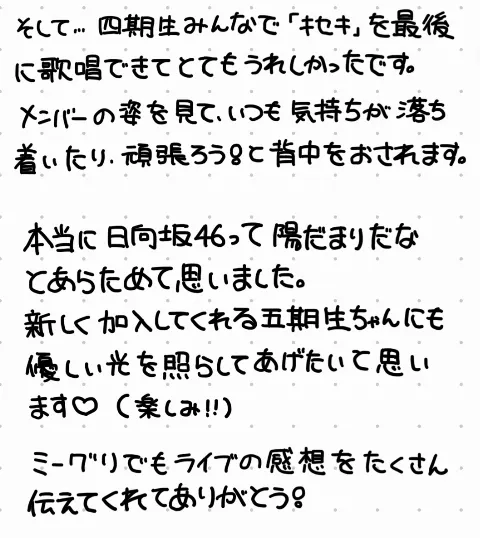 そして… 四期生みんなで「キセキ」を最後
に歌唱できてとてもうれしかったです。
メンバーの姿を見て、いつも気持ちが落ち
着いたり、頑張ろう!と背中をおされます。
本当に日向坂46って陽だまりだな
とあらためて思いました。
新しく加入してくれる五期生ちゃんにも
優しい光を照らしてあげたいて思い
ます♡ (楽しみ!!)
ミーグリでもライブの感想をたくさん
伝えてくれてありがとう!